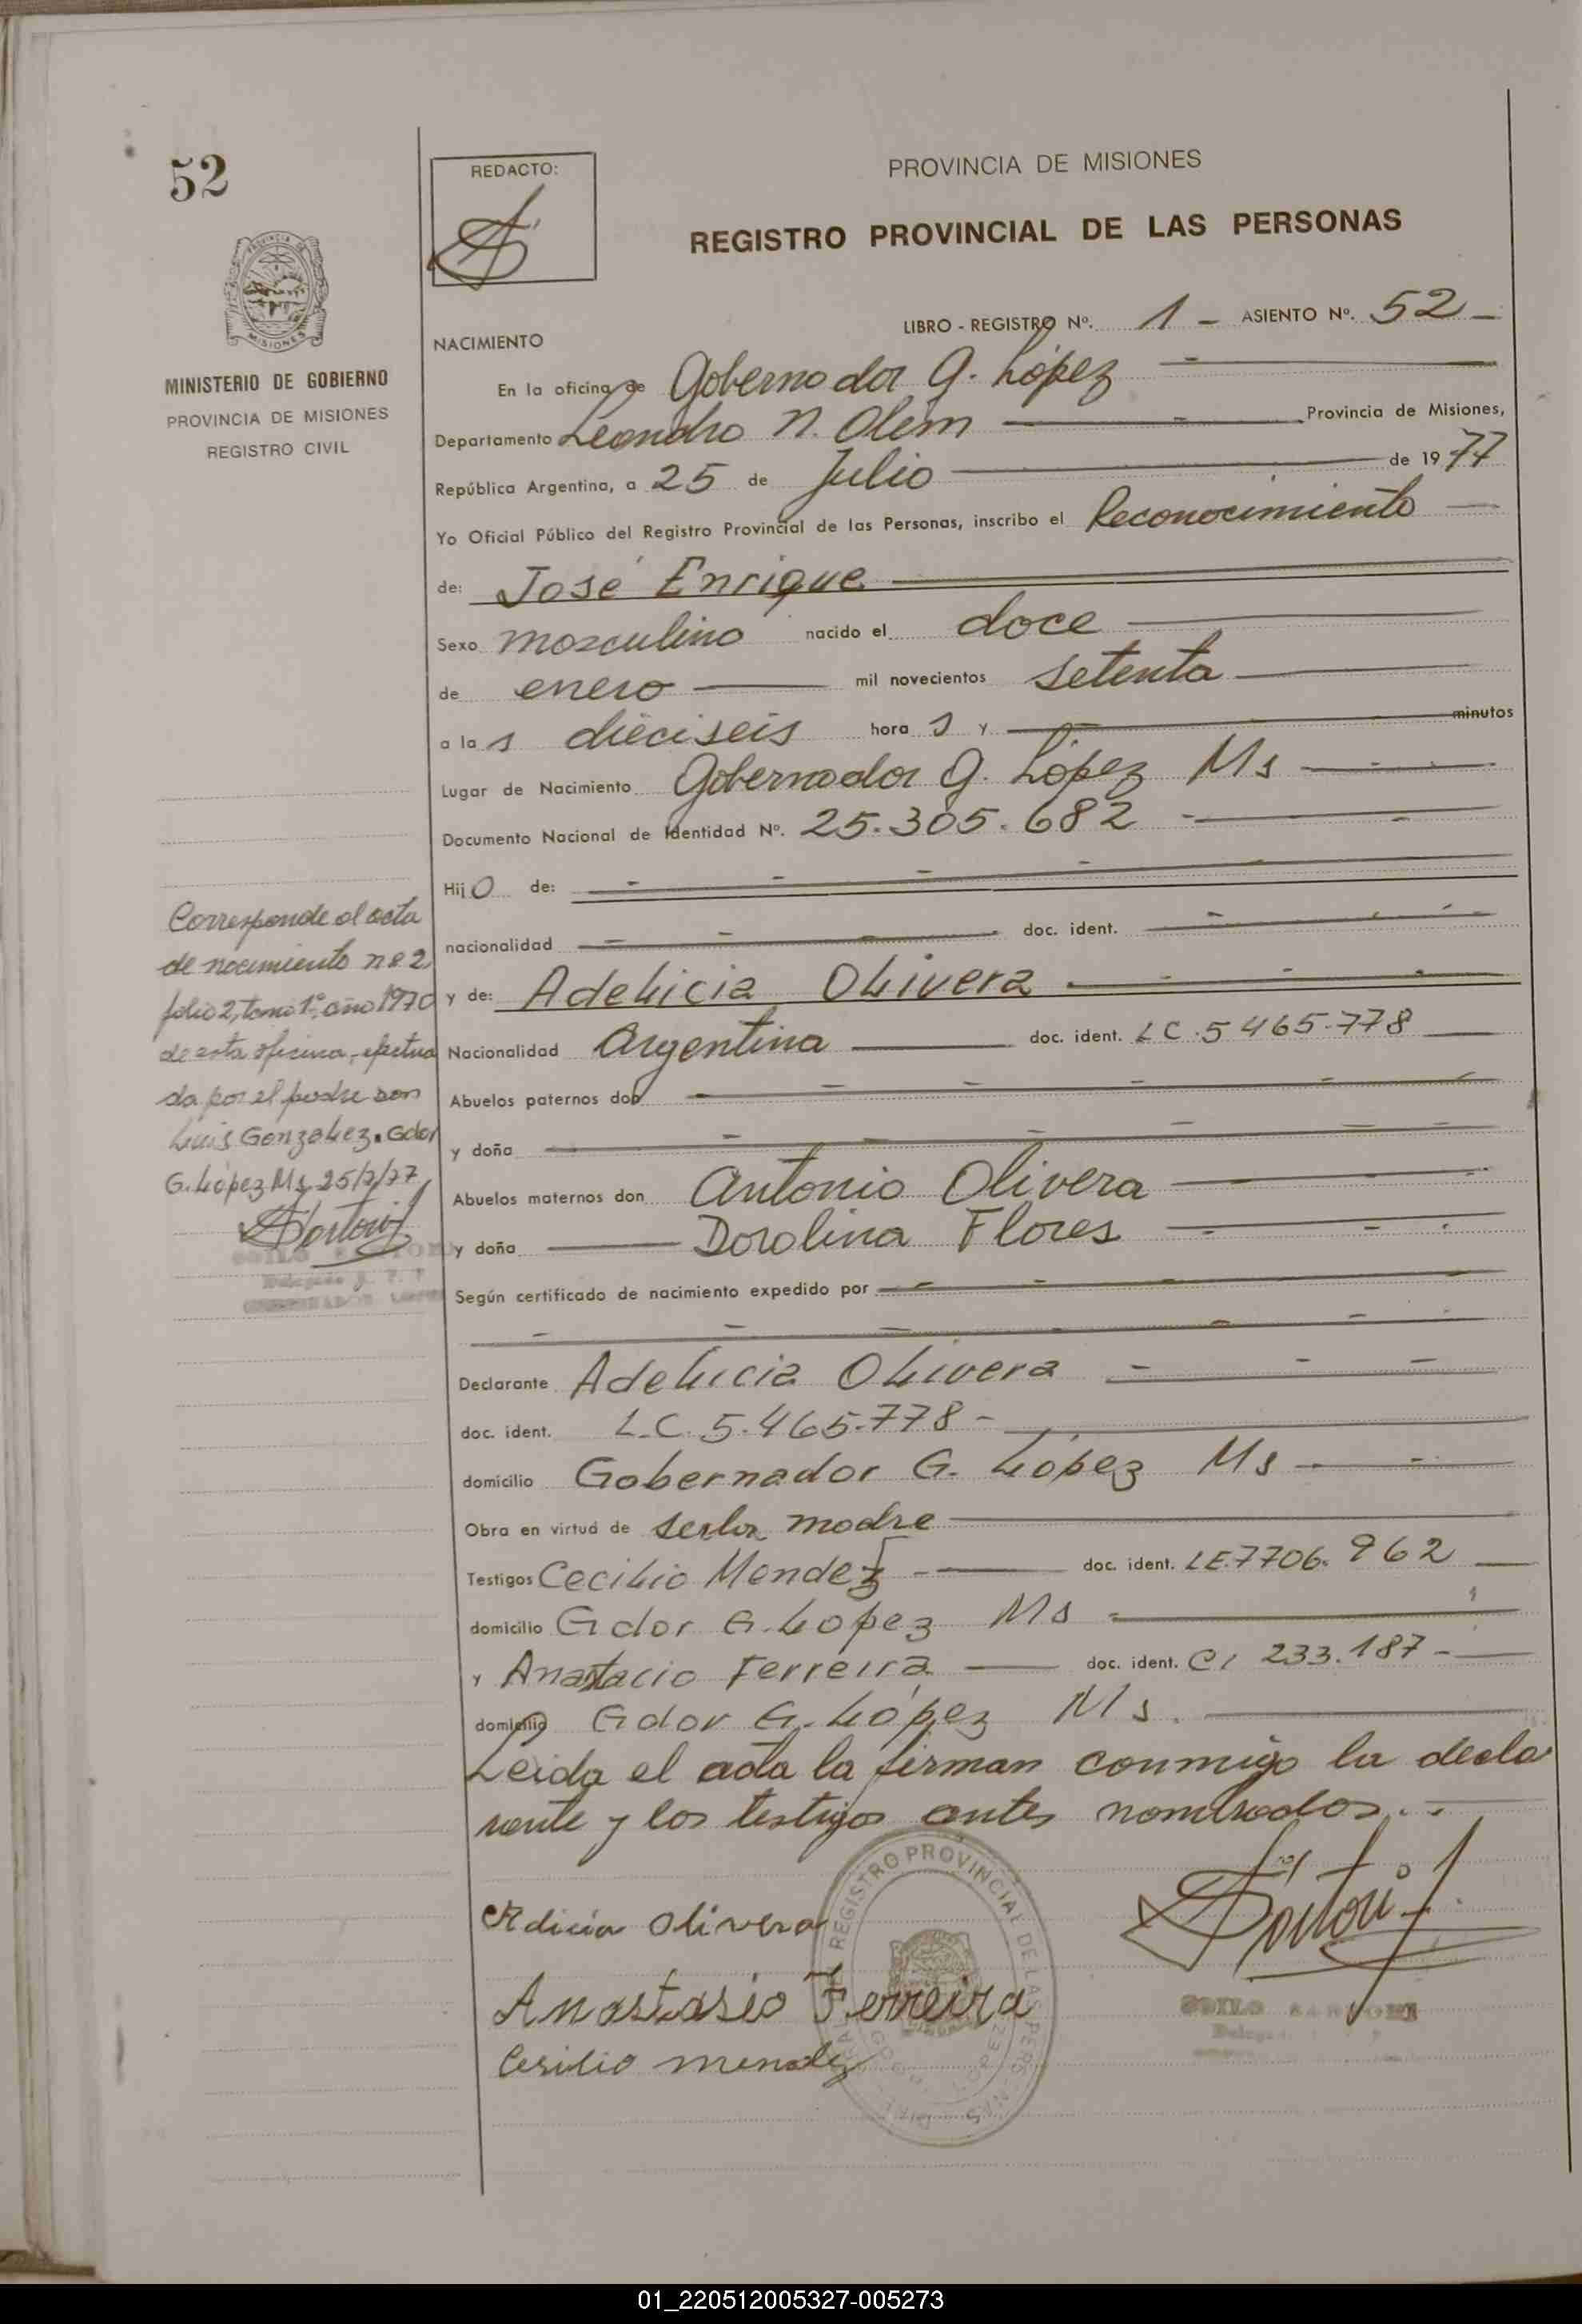 52
MINISTERIO DE GOBIERNO
PROVINCIA DE MISIONES
REGISTRO CIVIL
REDACTO:
PROVINCIA DE MISIONES
REGISTRO PROVINCIAL DE LAS PERSONAS
LIBRO - REGISTRO Nº. 1 - ASIENTO Nº. 52 -
NACIMIENTO
En la oficina de Gobernador G. López
Departamento Leandro N. Alem Provincia de Misiones,
República Argentina, a 25 de Julio de 1977
Yo Oficial Público del Registro Provincial de las Personas, inscribo el Reconocimiento
de: José Enrique
Sexo masculino nacido el doce
de enero mil novecientos setenta
a las dieciseis horas y minutos
Lugar de Nacimiento Gobernador G. López Ms
Documento Nacional de Identidad Nº. 25.305.682
Hijo de:
nacionalidad doc. ident.
y de: Adelicia Olivera
Nacionalidad Argentina doc. ident. LC.5465.778
Abuelos paternos don
y doña
Abuelos maternos don Antonio Olivera
y doña Dorolina Flores
Según certificado de nacimiento expedido por
Declarante Adelicia Olivera
doc. ident. L.C. 5.465.778-
domicilio Gobernador G. López Ms
Obra en virtud de ser la madre
Testigos Cecilio Mendez doc. ident. LE.7706.962
domicilio Gdor G. Lopez Ms
y Anastacio Ferreira doc. ident. CI 233.187-
domicilio Gdor G. López Ms.
Leida el acta la firman conmigo la decla
rante y los testigos antes nombrados.
Corresponde al acta
de nacimiento nº 2
folio 2, tomo 1º, año 1970
de esta oficina, efectua
da por el padre don
Luis Gonzalez. Gdor
G. López Ms 25/7/77
Adicia Olivera
Anastasio Ferreira
Cesilio mendez
REGISTRO PROVINCIAL DE LAS PERSONAS
01_220512005327-005273